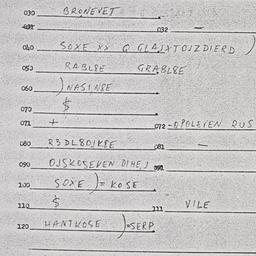 030 BRONEVET
031 032 —
040 SOXE XX Q GLAJATOJZDIERD )
050 RABL8E GRABL8E
060 ) NASIN8E
070 $
071 + 072 - OPOLEVEN RUS
080 R3DL8OJKPE 081 —
090 OJSKOSEVEN DIHEJ 091
100 SOXE ) = KOSE
110 $ 111 VILE
120 HANTKOSE ) =SERP